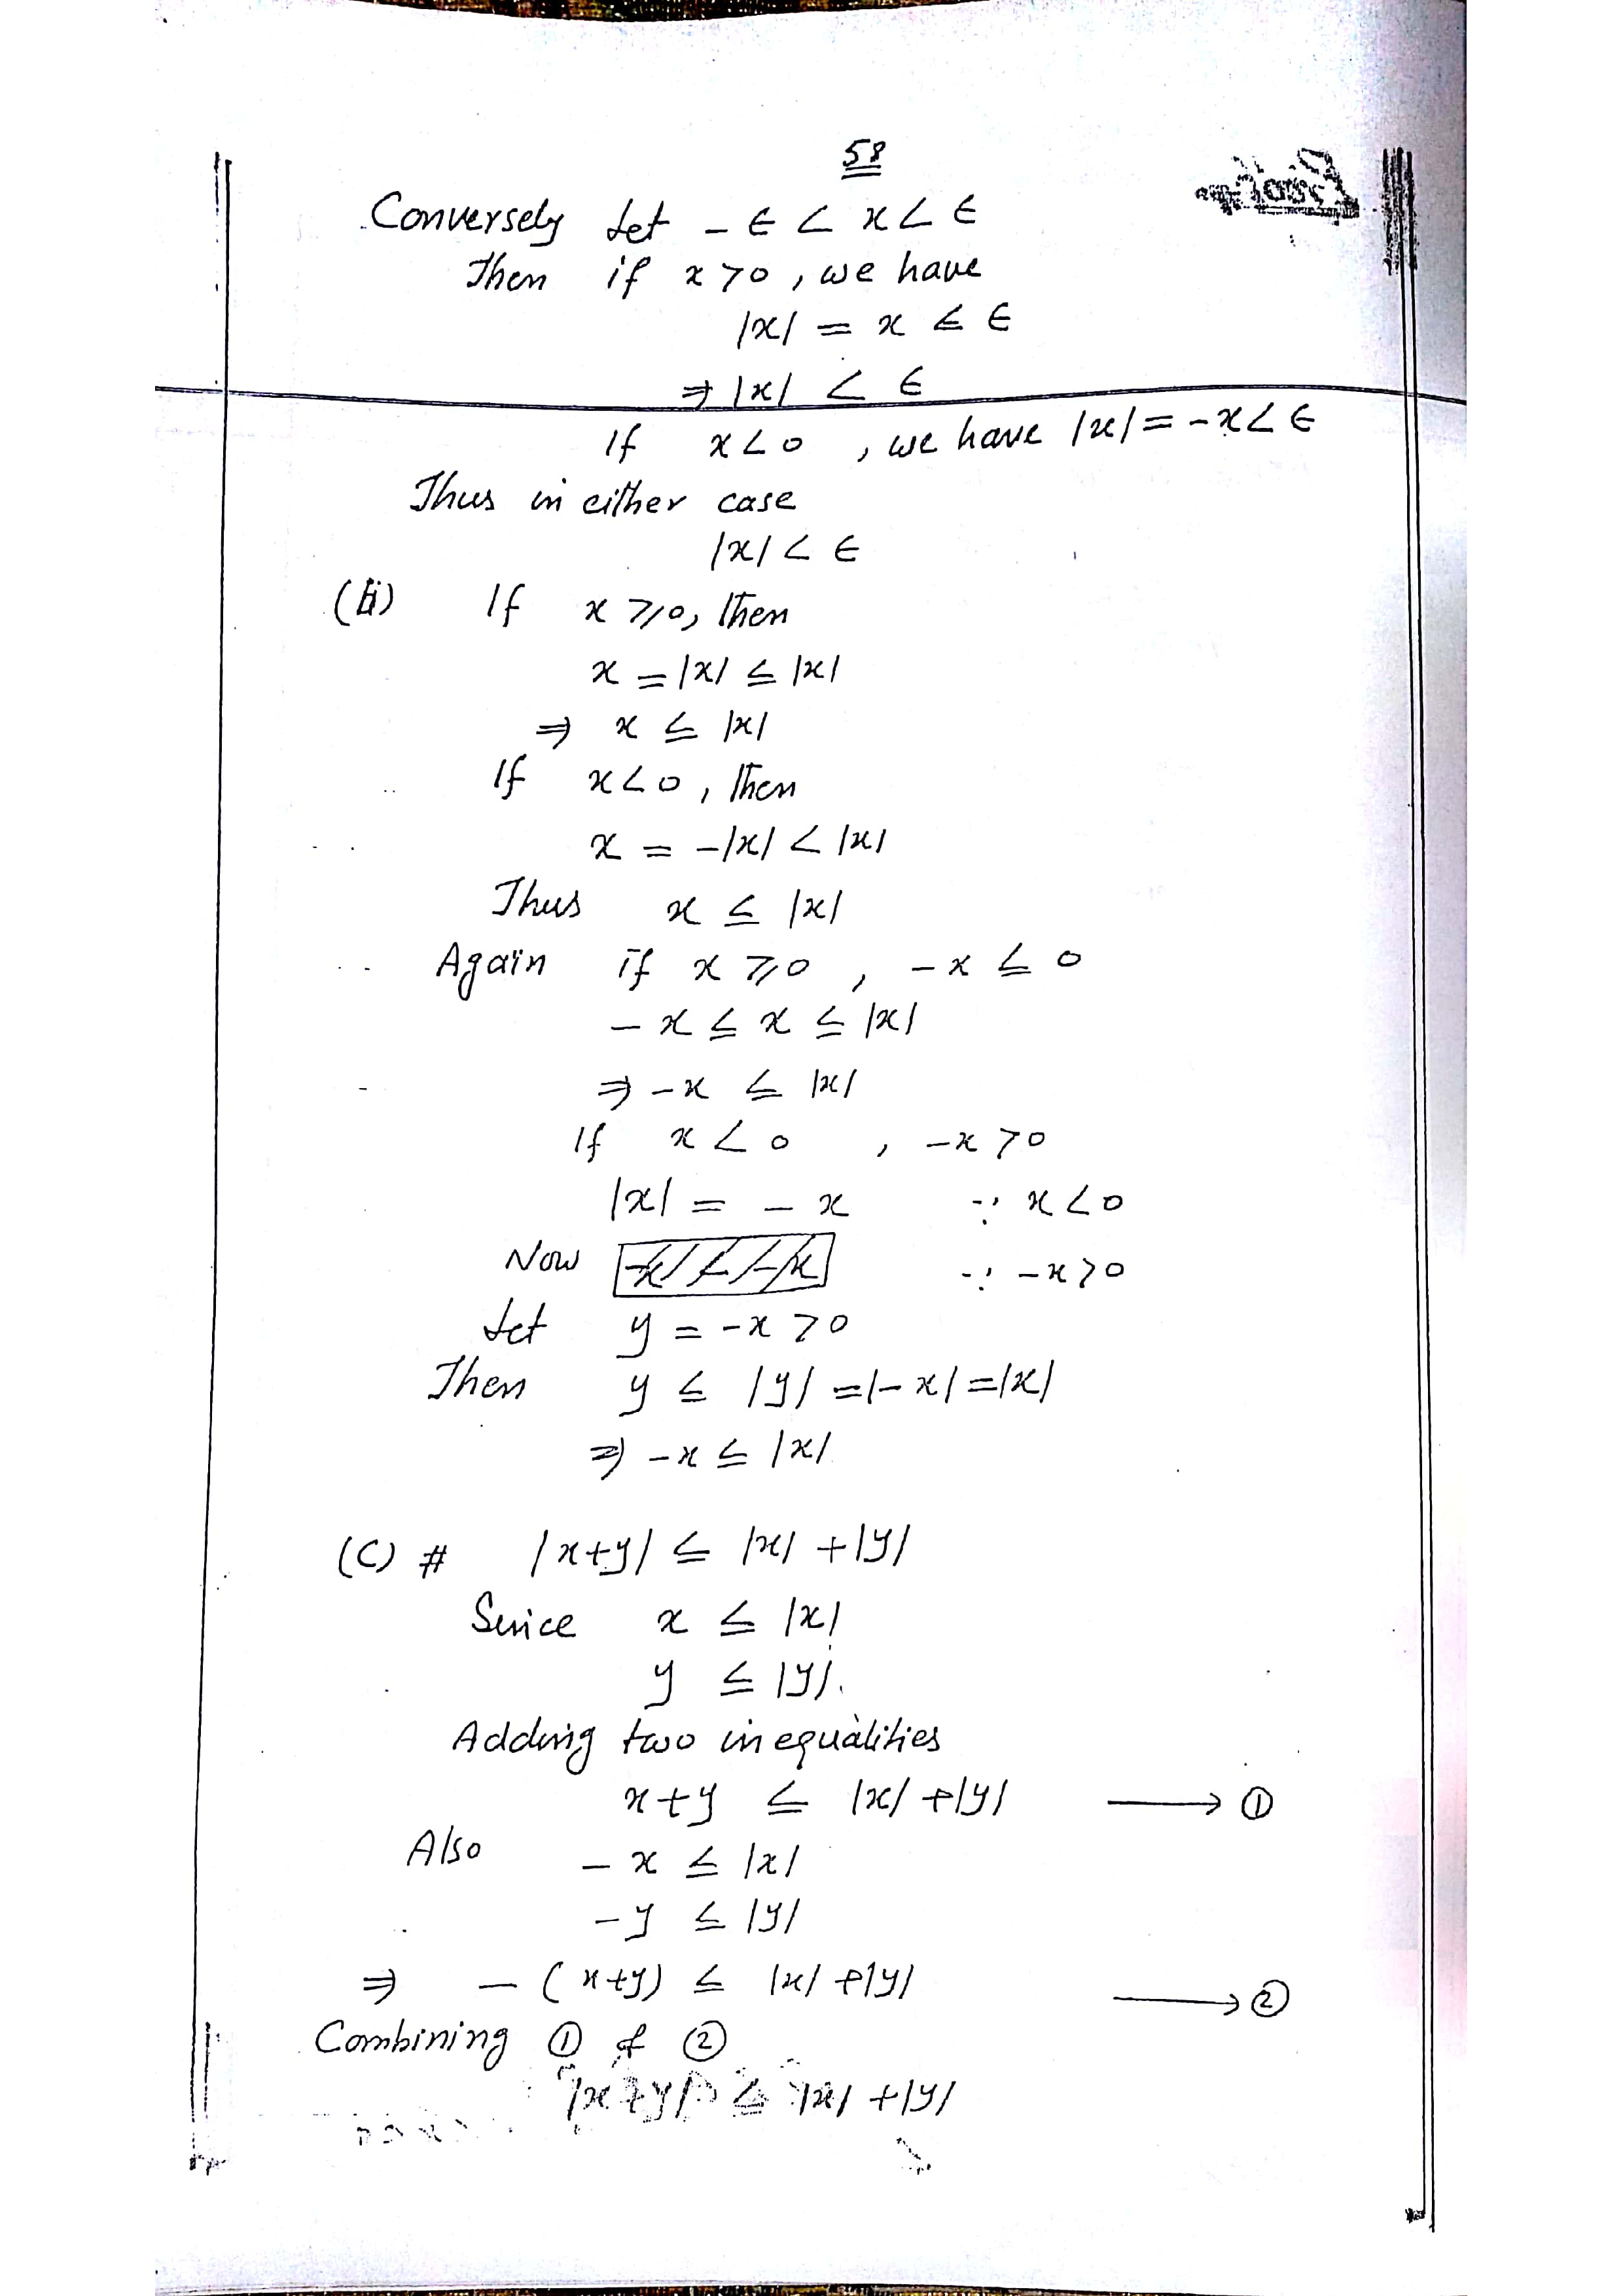 58
Conversely Let - ∈ < x < ∈
Then if x > 0 , we have
|x| = x < ∈
⇒ |x| < ∈
If x < 0 , we have |x| = - x < ∈
Thus in either case
|x| < ∈
(ii) If x ≥ 0, then
x = |x| ≤ |x|
⇒ x ≤ |x|
If x < 0 , then
x = -|x| < |x|
Thus x ≤ |x|
Again if x ≥ 0 , - x ≤ 0
- x ≤ x ≤ |x|
⇒ - x ≤ |x|
If x < 0 , - x > 0
|x| = - x ∵ x < 0
Now ∵ - x > 0
Let y = - x > 0
Then y ≤ |y| = |- x| = |x|
⇒ - x ≤ |x|
(C) # |x+y| ≤ |x| + |y|
Since x ≤ |x|
y ≤ |y|.
Adding two inequalities
x + y ≤ |x| + |y| → ①
Also - x ≤ |x|
- y ≤ |y|
⇒ - (x+y) ≤ |x| + |y| → ②
Combining ① & ②
|x+y| ≤ |x| + |y|